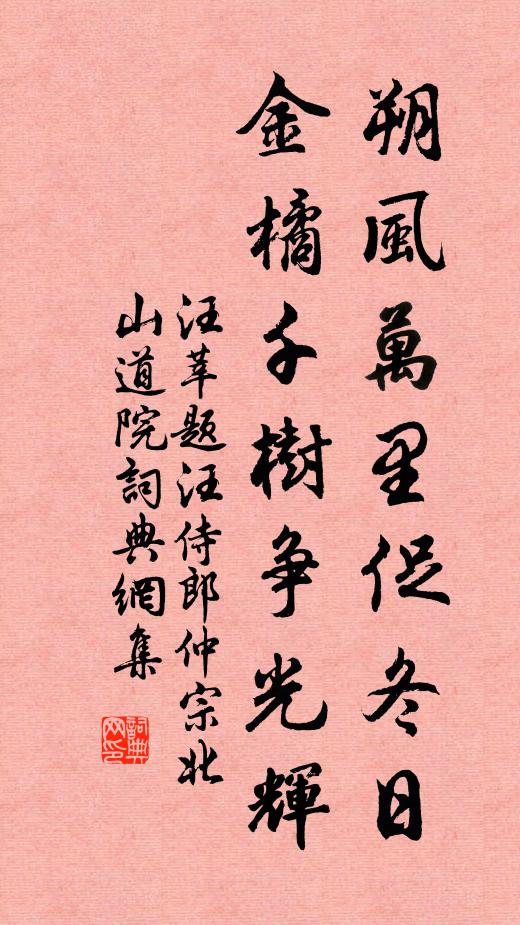 朔風萬里促冬日
金橘千樹爭光輝
汪莘題汪侍郎仲宗北
山道院詞典網集
詞典網印